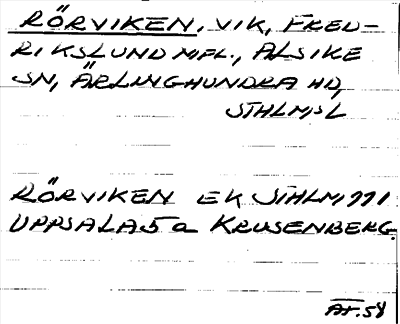 RÖRVIKEN, VIK, FRED-
RIKSLUND M.FL., ALSIKE
SN, ÄRLINGHUNDRA HD,
STHLMS L
RÖRVIKEN EK STHLM 771
UPPSALA 5 a KRUSENBERG.
AF. 58